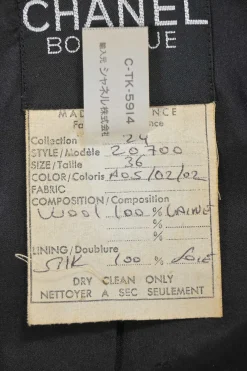 CHANEL
BOUTIQUE
C-TK-5914
輸入元 シャネル株式会社
MADE FRANCE
Fa
Collection 24
STYLE/Modèle 20700
SIZE/Taille 36
COLOR/Coloris A05/02/02
FABRIC
COMPOSITION/Composition
WOOL 100 % LAINE
%
%
LINING/Doublure
SILK 100 % SOIE
DRY CLEAN ONLY
NETTOYER A SEC SEULEMENT